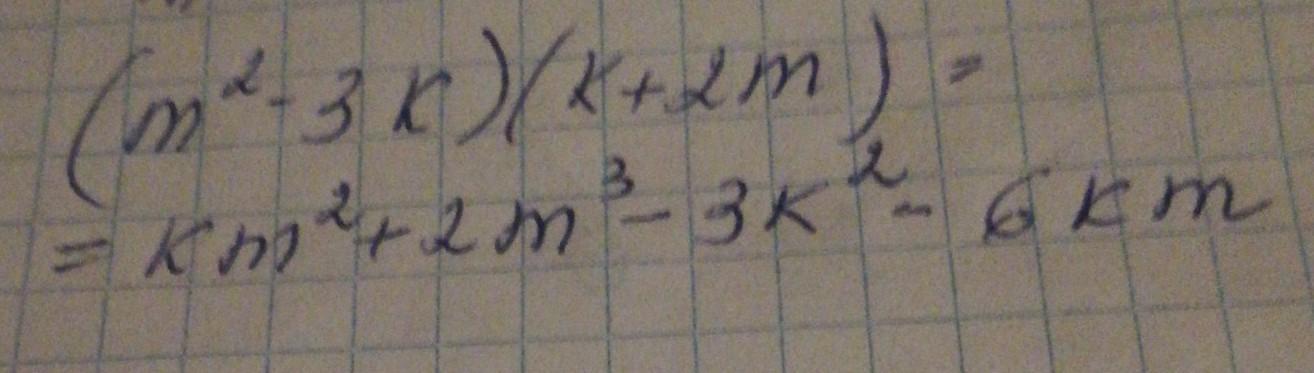 (m² - 3k)(k + 2m) =
= km² + 2m³ - 3k² - 6km